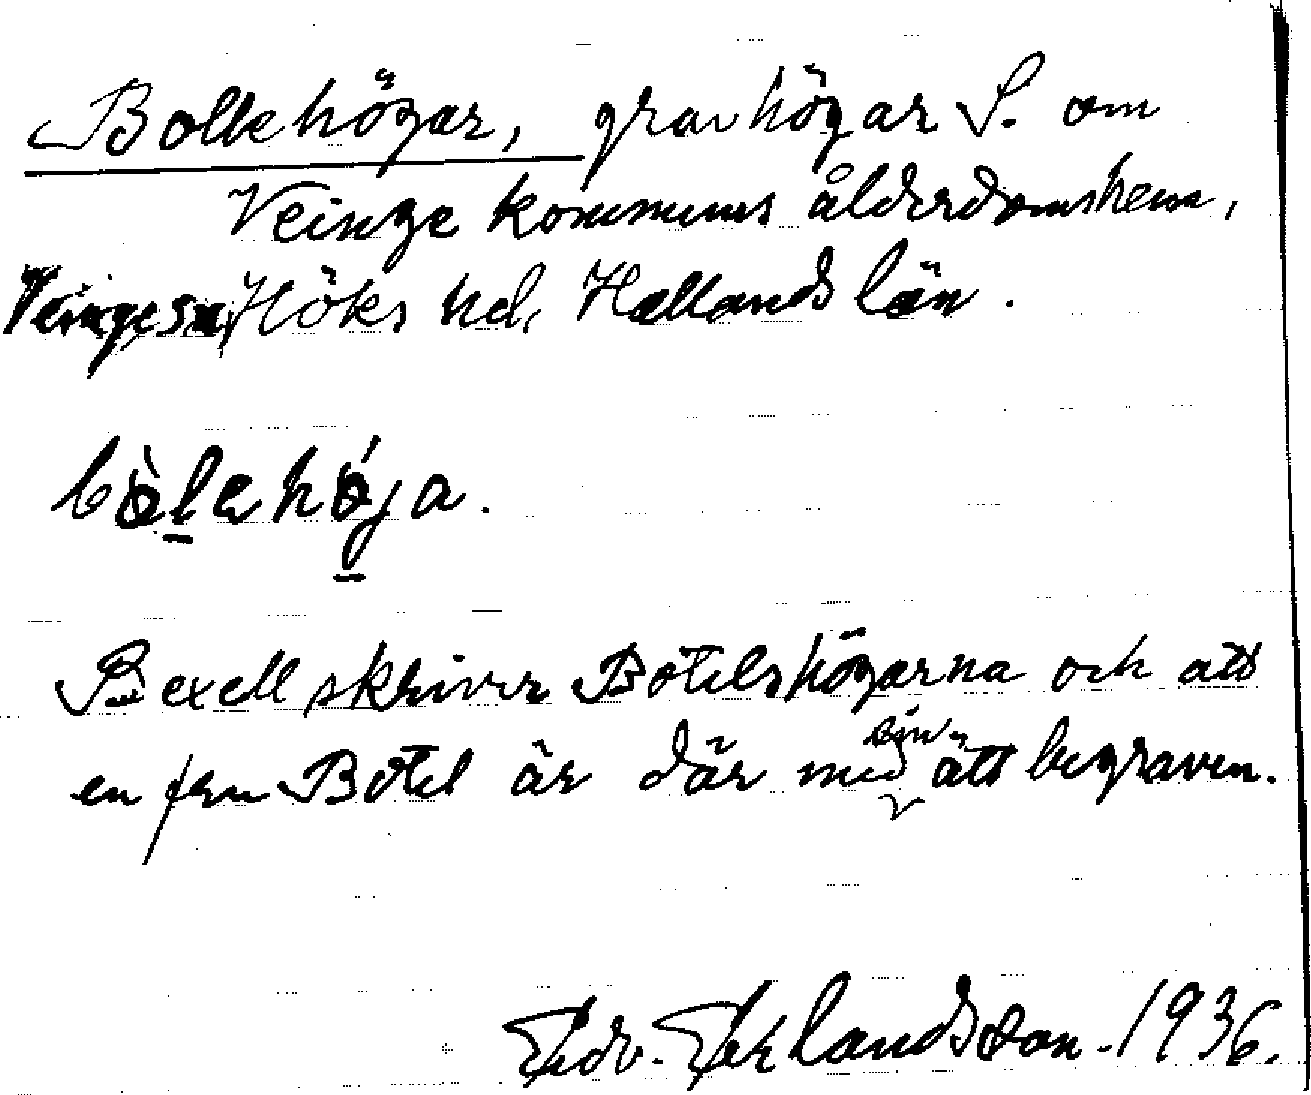 Bollehögar, gravhögar S. om
Veinge kommuns ålderdomshem,
Veinge sn, Höks hd, Hallands län.
bòlehǿja.
Bexell skriver Botelshögarna och att
en fru Botel är där med sin ätt begraven.
Edv. Erlandsson. 1936.